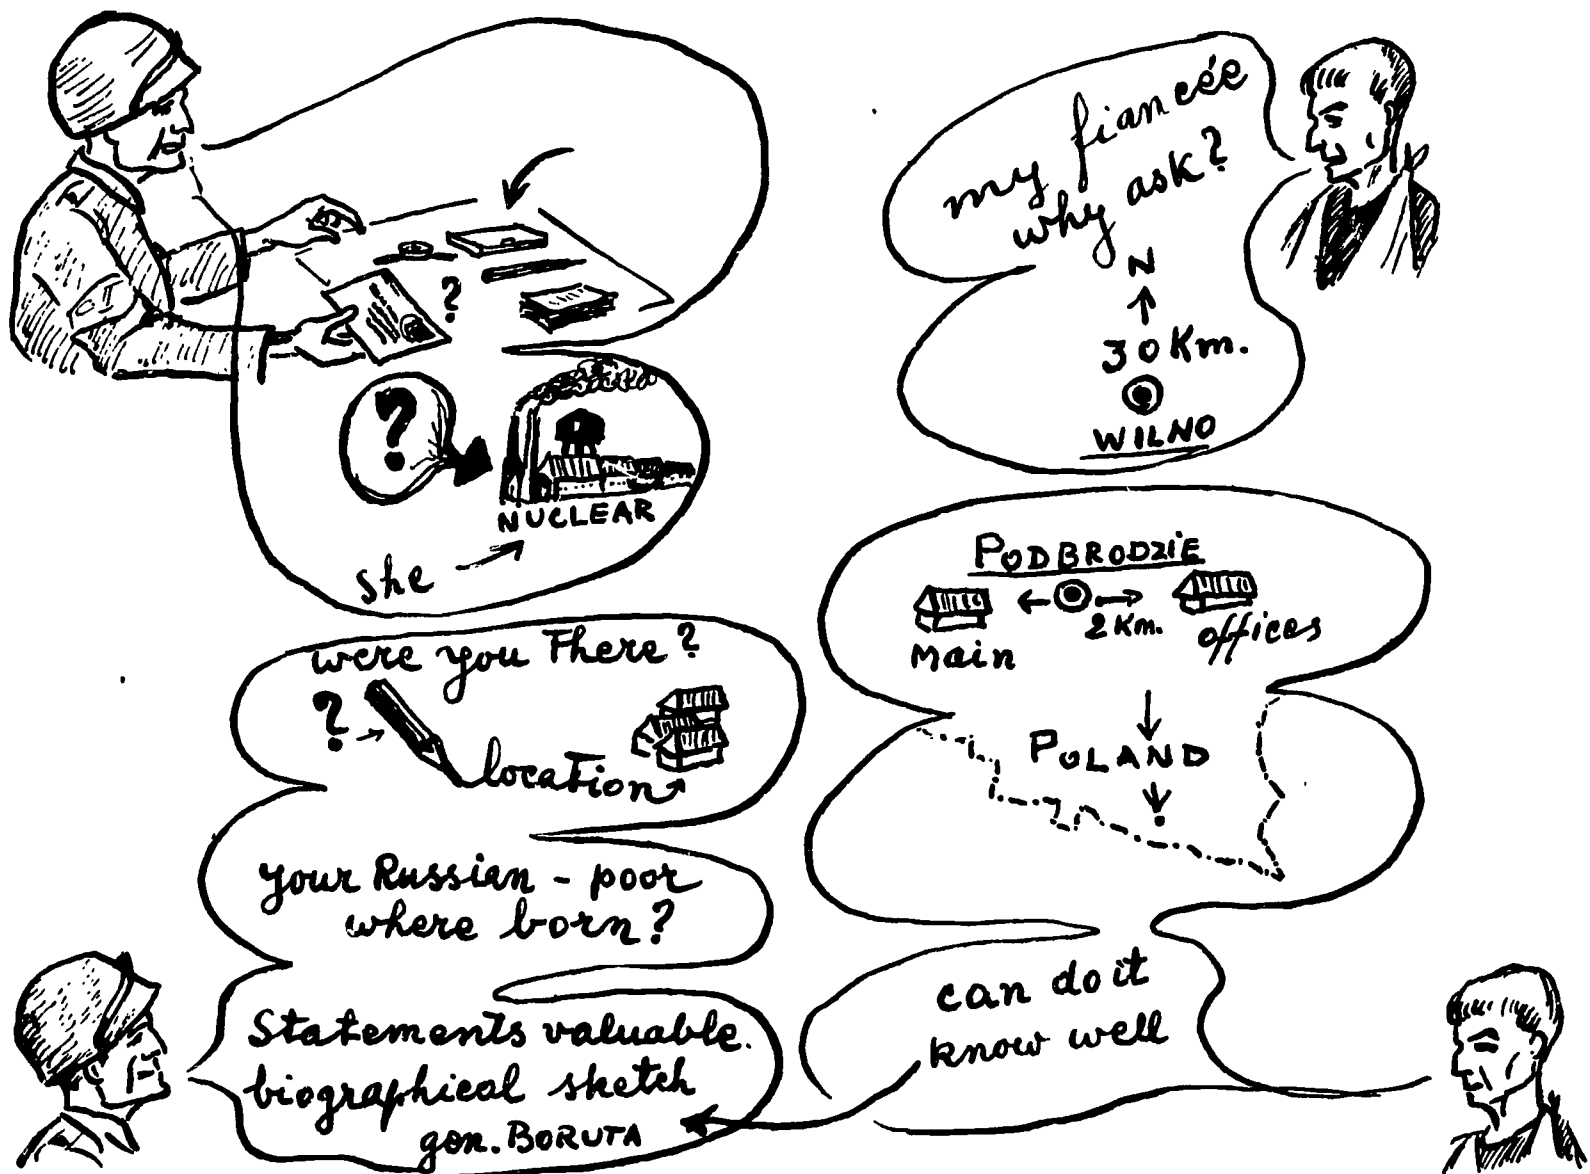 ?
?
NUCLEAR
she
my fiancée
why ask?
N
30 Km.
WILNO
were you There?
?
location
your Russian - poor
where born?
Statements valuable.
biographical sketch
gen. BORUTA
PODBRODZIE
2 Km.
Main
offices
POLAND
can do it
know well